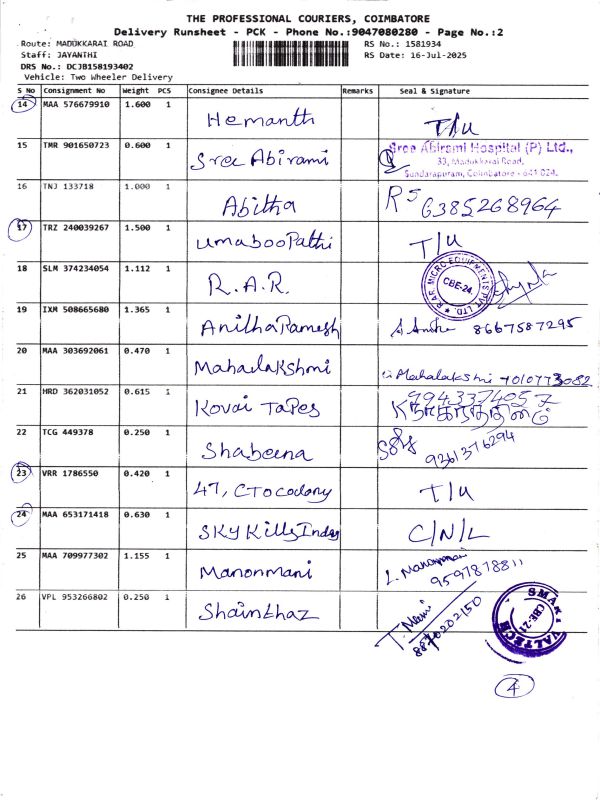 THE PROFESSIONAL COURIERS, COIMBATORE
Delivery Runsheet - PCK - Phone No.:9047080280 - Page No.:2
Route: MADUKKARAI ROAD RS No.: 1581934
Staff: JAYANTHI RS Date: 16-Jul-2025
DRS No.: DCJB158193402
Vehicle: Two Wheeler Delivery
S No Consignment No Weight PCS Consignee Details Remarks Seal & Signature
14 MAA 576679910 1.600 1 Hemanth T/U
15 TMR 901650723 0.600 1 Sree Abirami Sree Abirami Hospital (P) Ltd.,
33, Madukkarai Road,
Sundarapuram, Coimbatore - 641 024.
16 TNJ 133718 1.000 1 Abitha RS 6385268964
17 TRZ 240039267 1.500 1 UmabooPathi T/U
18 SLM 374234054 1.112 1 R.A.R. R.A.R. MICRO EQUIPMENTS PVT LTD. CBE-24.
19 IXM 508665680 1.365 1 AnithaRamesh 8667587295
20 MAA 303692061 0.470 1 Mahalakshmi Mahalakshmi 7010773082
21 HRD 362031052 0.615 1 Kovai Tapes 9943374057
22 TCG 449378 0.250 1 Shabeena 9361376294
23 VRR 1786550 0.420 1 47, CTO colony T/U
24 MAA 653171418 0.630 1 Sky Kills Inday C/N/L
25 MAA 709977302 1.155 1 Manonmani L. Manonmani
9597878811
26 VPL 953266802 0.250 1 Shainthaz T. Mani
8870202150
SMART VALTECH CBE-21
4